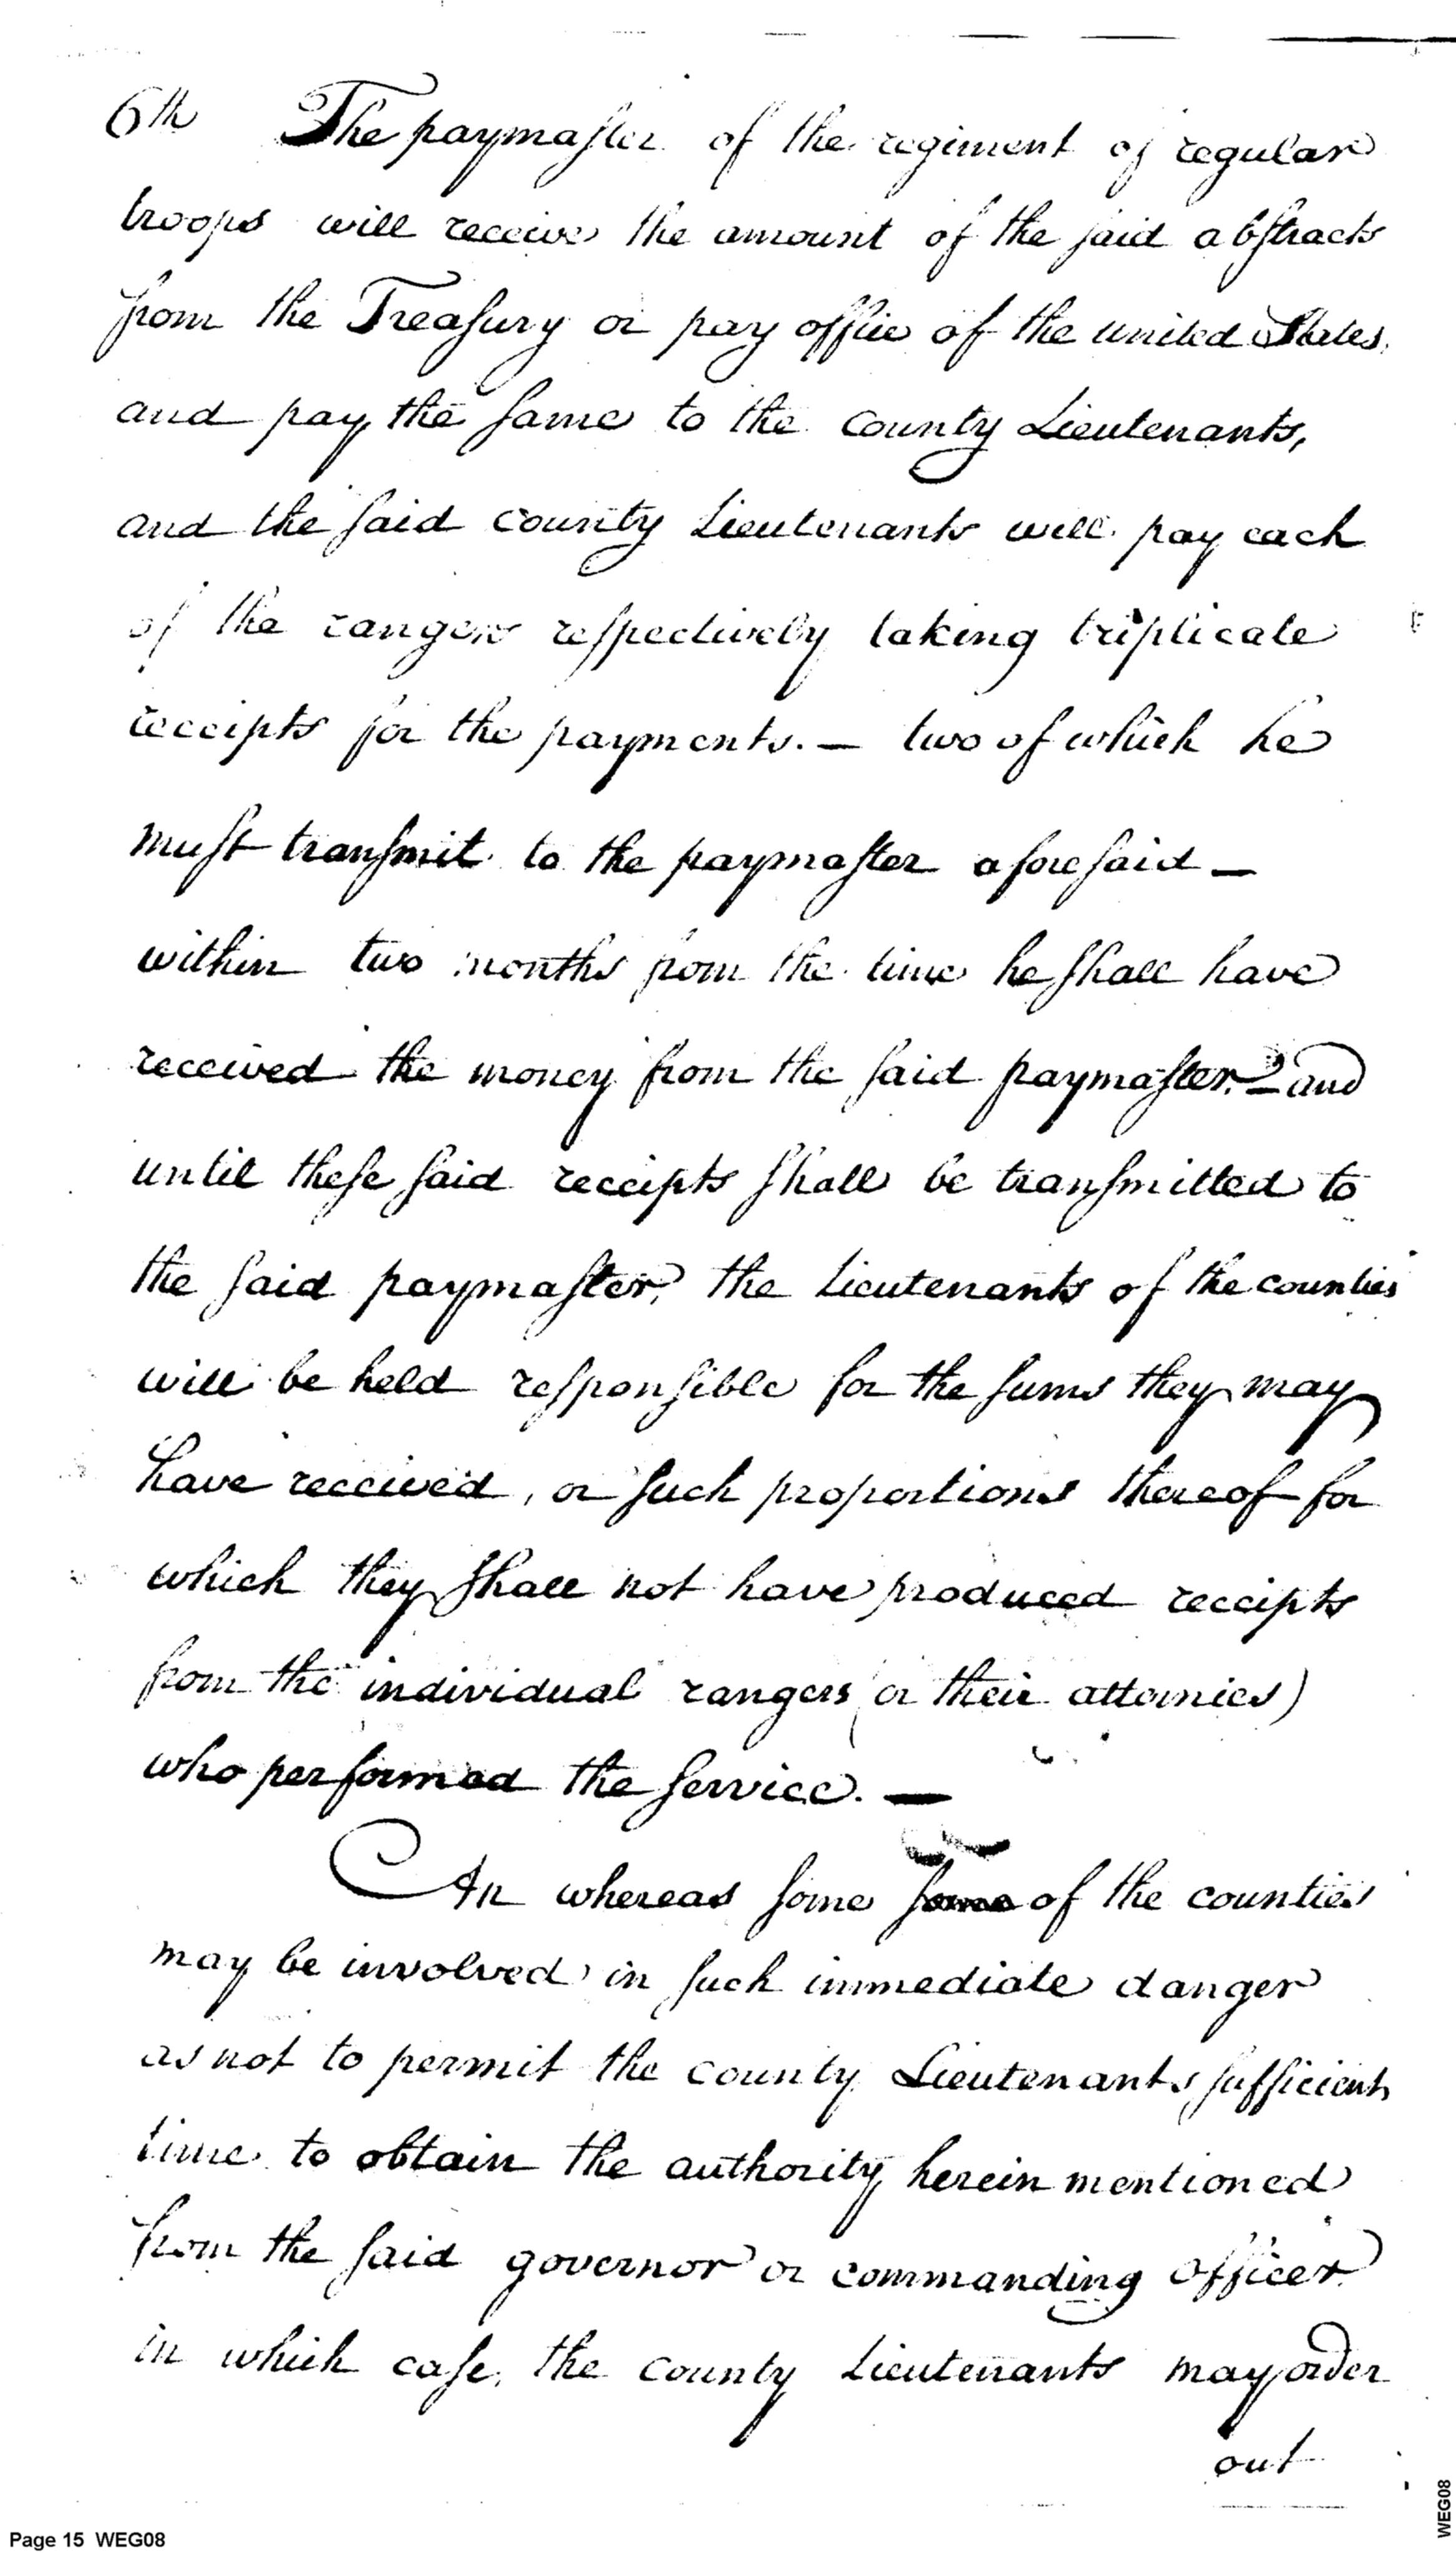 6th The paymaster of the regiment of regular
troops will receive the amount of the said abstracts
from the Treasury or pay office of the united States,
and pay the same to the county Lieutenants,
and the said county Lieutenants will pay each
of the rangers respectively taking triplicate
receipts for the payments. — two of which he
must transmit to the paymaster aforesaid —
within two months from the time he shall have
received the money from the said paymaster. — and
until these said receipts shall be transmitted to
the said paymaster, the Lieutenants of the counties
will be held responsible for the sums they may
have received, or such proportions thereof for
which they shall not have produced receipts
from the individual rangers (or their attornies)
who performed the service. —
An whereas some some of the counties
may be involved in such immediate danger
as not to permit the county Lieutenants sufficient
time to obtain the authority herein mentioned
from the said governor or commanding officer
in which case, the county Lieutenants may order
out
Page 15 WEG08
WEG08